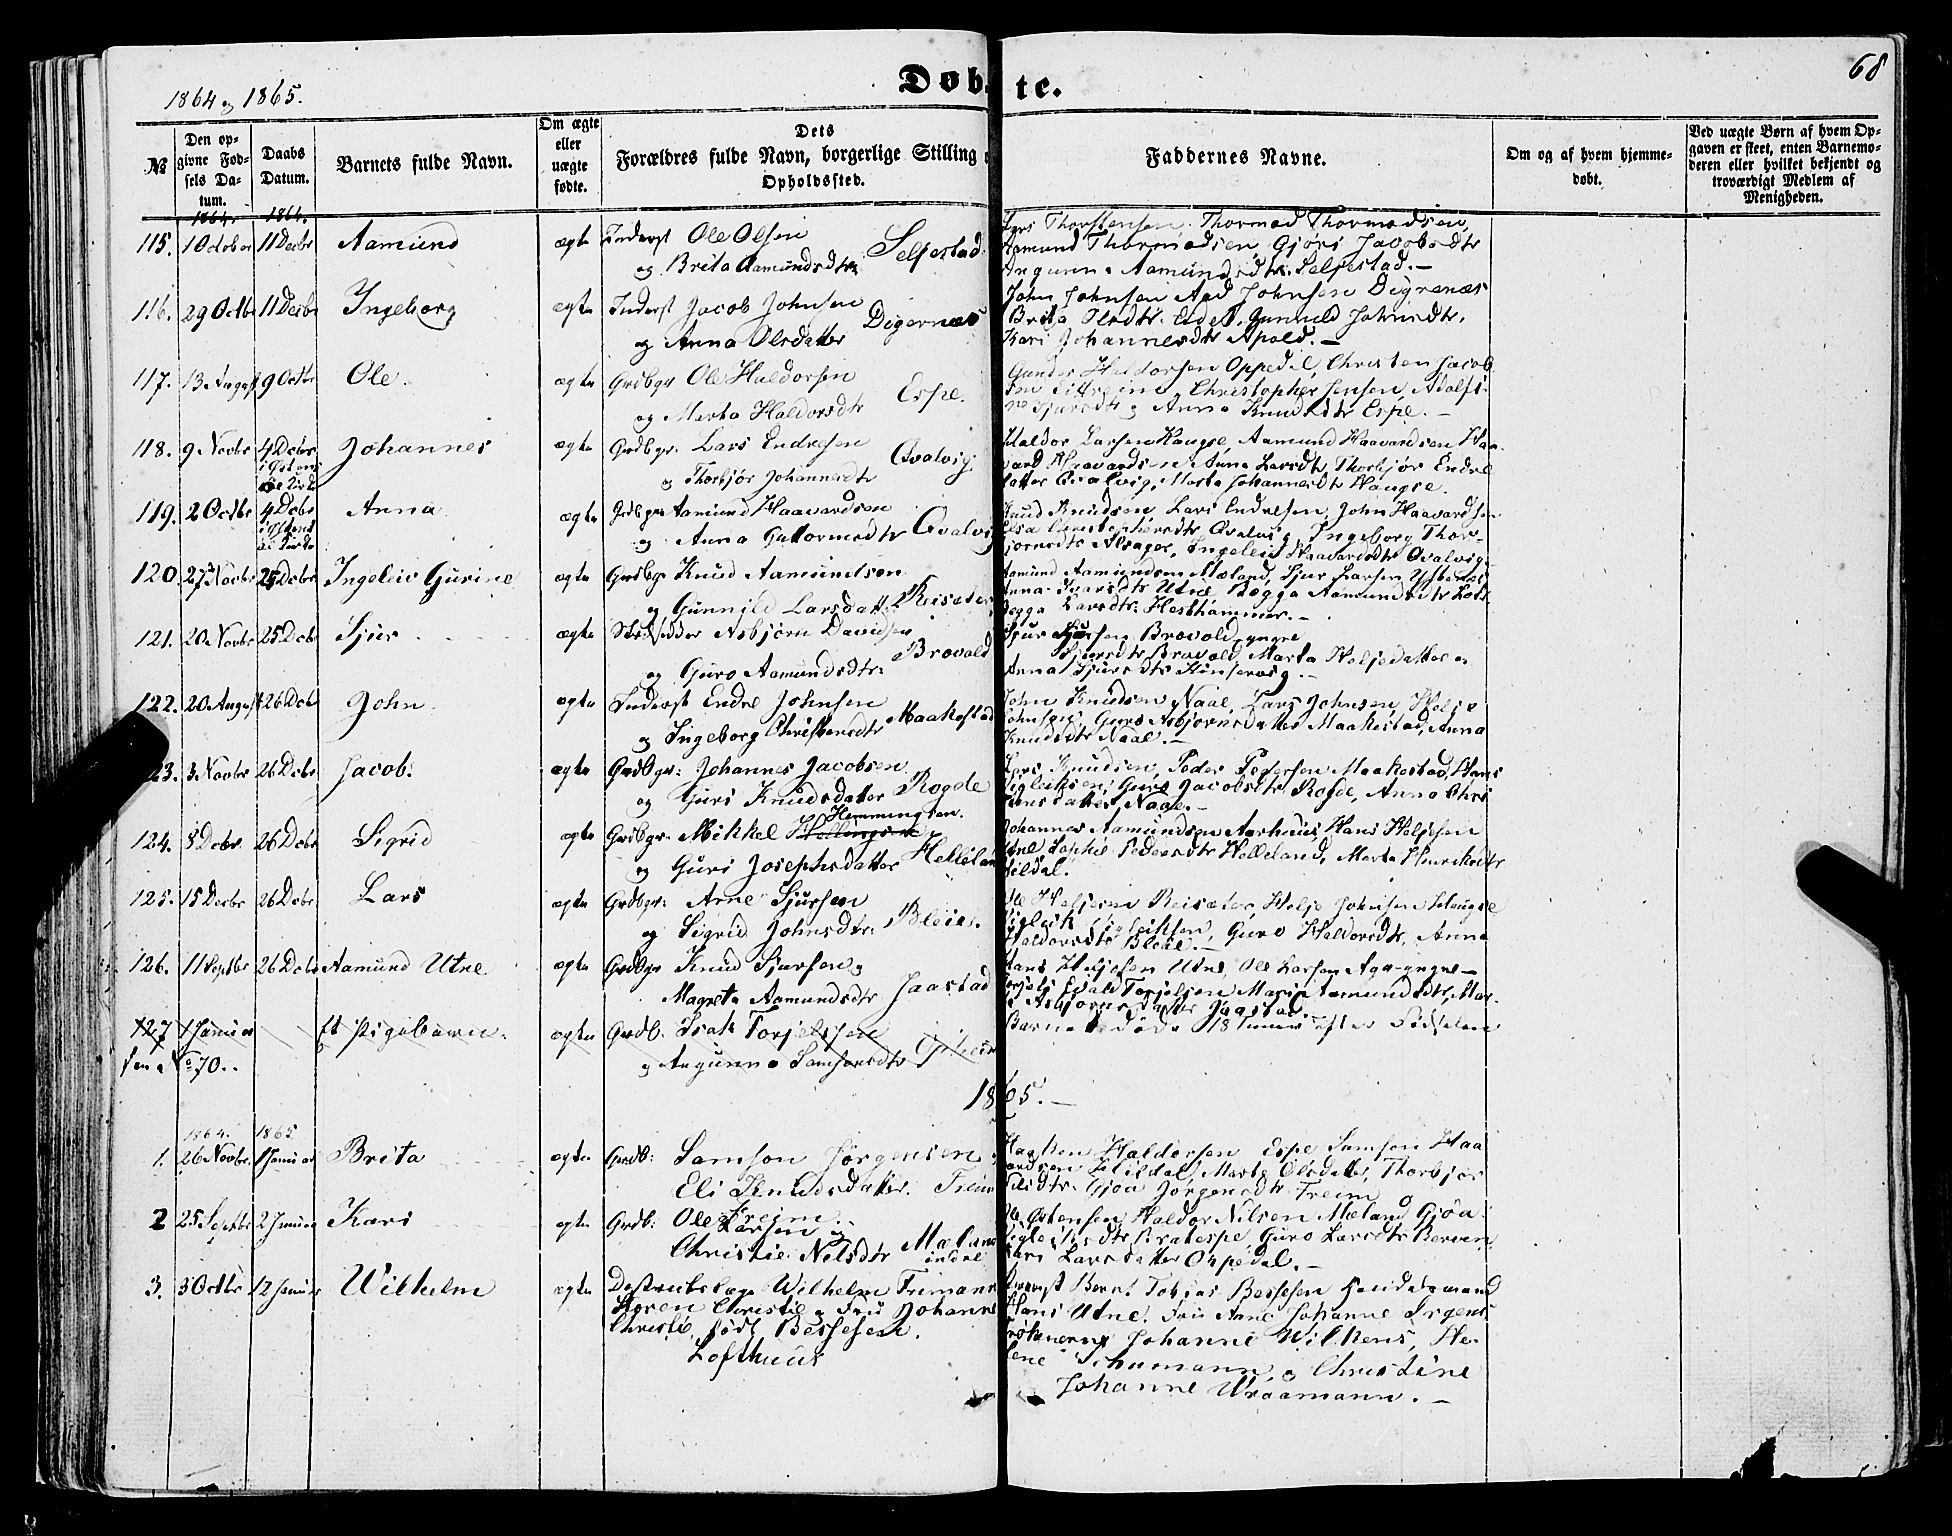 68
Døbte.
1864 og 1865.
№
Den opgivne Fødsels Datum.
Daabs Datum.
Barnets fulde Navn.
Om ægte eller uægte fødte.
Dets Forældres fulde Navn, borgerlige Stilling
Opholdssted.
Faddernes Navne.
Om og af hvem hjemmedøbt.
Ved uægte Børn af hvem Opgaven er skeet, enten Barnemoderen eller hvilket bekjendt og troværdigt Medlem af Menigheden.
1864. 1864.
115. 1 October 11 Decbr Aamund ægte Inderst Ole Olsen
og Brita Aamundsdtr. Seljestad
Thorstensen, Thormod Thormodsen,
Aamund Thormodsen, Gjøri Jacobsdtr
Angunna Aamundsdtr. Seljestad.—
116. 29 Octbr 11 Decbr Ingeborg ægte Inderst Jacob Johnsen
og Anna Olsdatter Digernæs
John Johnsen Aad Johnsen Digrenæs
Brita Olsdtr. Eidet, Gunnild Johnsdtr,
Kari Johannesdtr Apold.—
117. 13 August 9 Octbr Ole. ægte Grdbgr Ole Haldorsen
og Marta Haldorsdtr Espe.
Gunder Haldorsen Oppedal, Christen Jacob
sen Sittreim, Christopher Jensen,
Sjursdtr og Anna Knudsdtr Espe.—
118. 9 Novbr 4 Decbr Johannes ægte Grdbgr. Lars Endresen
og Thorbjør Johannesdtr Qvalvig
Haldor Larsen Haugse, Aamund Haavardsen Haa-
vard Haavardsen, Anna Larsdtr, Thorbjør Endre
datter Qvalvig, Marta Johannesdtr Haugse.
119. 2 Octbr 4 Decbr Anna ægte Grdbgr Aamund Haavardsen
og Anna Guttormsdtr Qvalvig
Knud Knudsen, Lars Endresen, John Haavardsen
Elsa Christophersdtr Qvalvig, Ingeborg Thor-
bjørnsdtr Alsager, Ingeleiv Haavardsdtr Qvalvig
120. 27 Novbr 25 Decbr Ingeleiv Gurine ægte Grdbgr Knud Aamundsen
og Gunnild Larsdatter Reisæter
Aamund Aamundsen Mæland, Sjur Larsen
Anna Ivarsdtr Utne, Bægga Aamundsdtr
Bægga Larsdtr. Hesthammer.—
121. 20 Novbr 25 Decbr Sjur ægte Asbjørn Davidsen
og Guro Aamundsdtr. Bravold
Sjur Sjursen Bravold yngre
Sjursdtr Bravold, Marta Heljedatter og
Anna Sjursdtr Kinservig.—
122. 20 August 26 Decbr John. ægte Inderst Endre Johnsen
og Ingeborg Christensdtr Maakestad
John Knudsen Naae, Lars Johnsen, Helje
Johnsen, Guro Asbjørnsdatter Maakestad, Anna
Knudsdtr Naae.—
123. 3 Novbr 26 Decbr Jacob. ægte Grdbgr: Johannes Jacobsen
og Guri Knudsdatter Rogde
Lars Knudsen, Peder Pedersen Maakestad, Hans
Vigleiksen, Guro Jacobsdtr Rogde, Anna Chri
stensdatter Naae.—
124. 5 Decbr. 26 Decbr Sigrid ægte Grdbgr. Mikkel Hemmingsen.
og Guri Josephsdatter Helleland
Johannes Aamundsen Aarhuus, Hans Heljesen
Utne Sophie Pedersdtr Helleland, Marta Henriksdtr
Hildal.
125. 15 Decbr 26 Decbr Lars ægte Grdbgr: Arne Sjursen
og Sigrid Johnsdtr. Bleie.
Ole Heljesen Reisæter, Helje Johnsen Haugse
Vigleik Vigleiksen, Guro Haldorsdtr, Anna
Haldorsdtr Bleie.—
126. 11 Septbr 26 Decbr Aamund Utne ægte Grdbgr Knud Sjursen og
Magreta Aamundsdtr Jaastad
Hans Heljesen Utne, Ole Larsen Aga yngre—
Torjels Evald Torjelsen, Maria Aamundsdtr, Mar-
Asbjørnsdatter Jaastad.
127 1 Januar Et Pigebarn. ægte Grdb. Isak Torjelssen
og Angunna Samsonsdtr
Barnet døde 18 Timer efter Fødselen
№ 70.
1865.—
1864. 1865.
1. 26 Novbr. 1 Januar Brita ægte Grdb: Samson Jørgensen
Eli Knudsdatter. Freim
Haaken Haldorsen Espe Samson Haa
vardsen Hildal, Marta Olsdatter, Thorbjør
Nilsdtr. Gjøa Jørgensdtr Freim
2 25 Septbr 2 Januar Kari ægte Grdb: Ole Larsen og
Freim.
Christie Nilsdtr Mæland indre
Ole Østensen, Haldor Nilsen Mæland Gjøa
Vigleiksdtr Bratespe, Guro Larsdtr Berven,
Kari Larsdatter Oppedal.—
3. 3 Octbr 12 Januar Wilhelm ægte Destriktslæge Wilhelm Frimann
Koren Christie og Frue Johanne
Christie født Bessesen.
Lofthuus
Provst Bernt Tobias Bessesen
Hans Utne, Frue Anne Johanne Irgens
Frøknerne Johanne Wilkens, He-
lene Schumann, og Christine
Johanne Wraamann.—